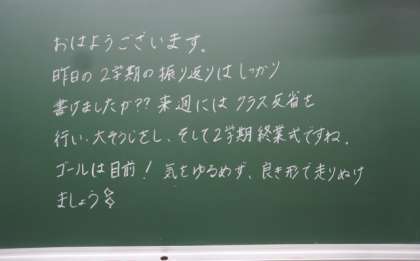 おはようございます。
昨日の2学期の振り返りはしっかり
書けましたか?? 来週にはクラス反省を
行い、大そうじをし、そして2学期終業式ですね。
ゴールは目前! 気をゆるめず、良き形で走りぬけ
ましょう